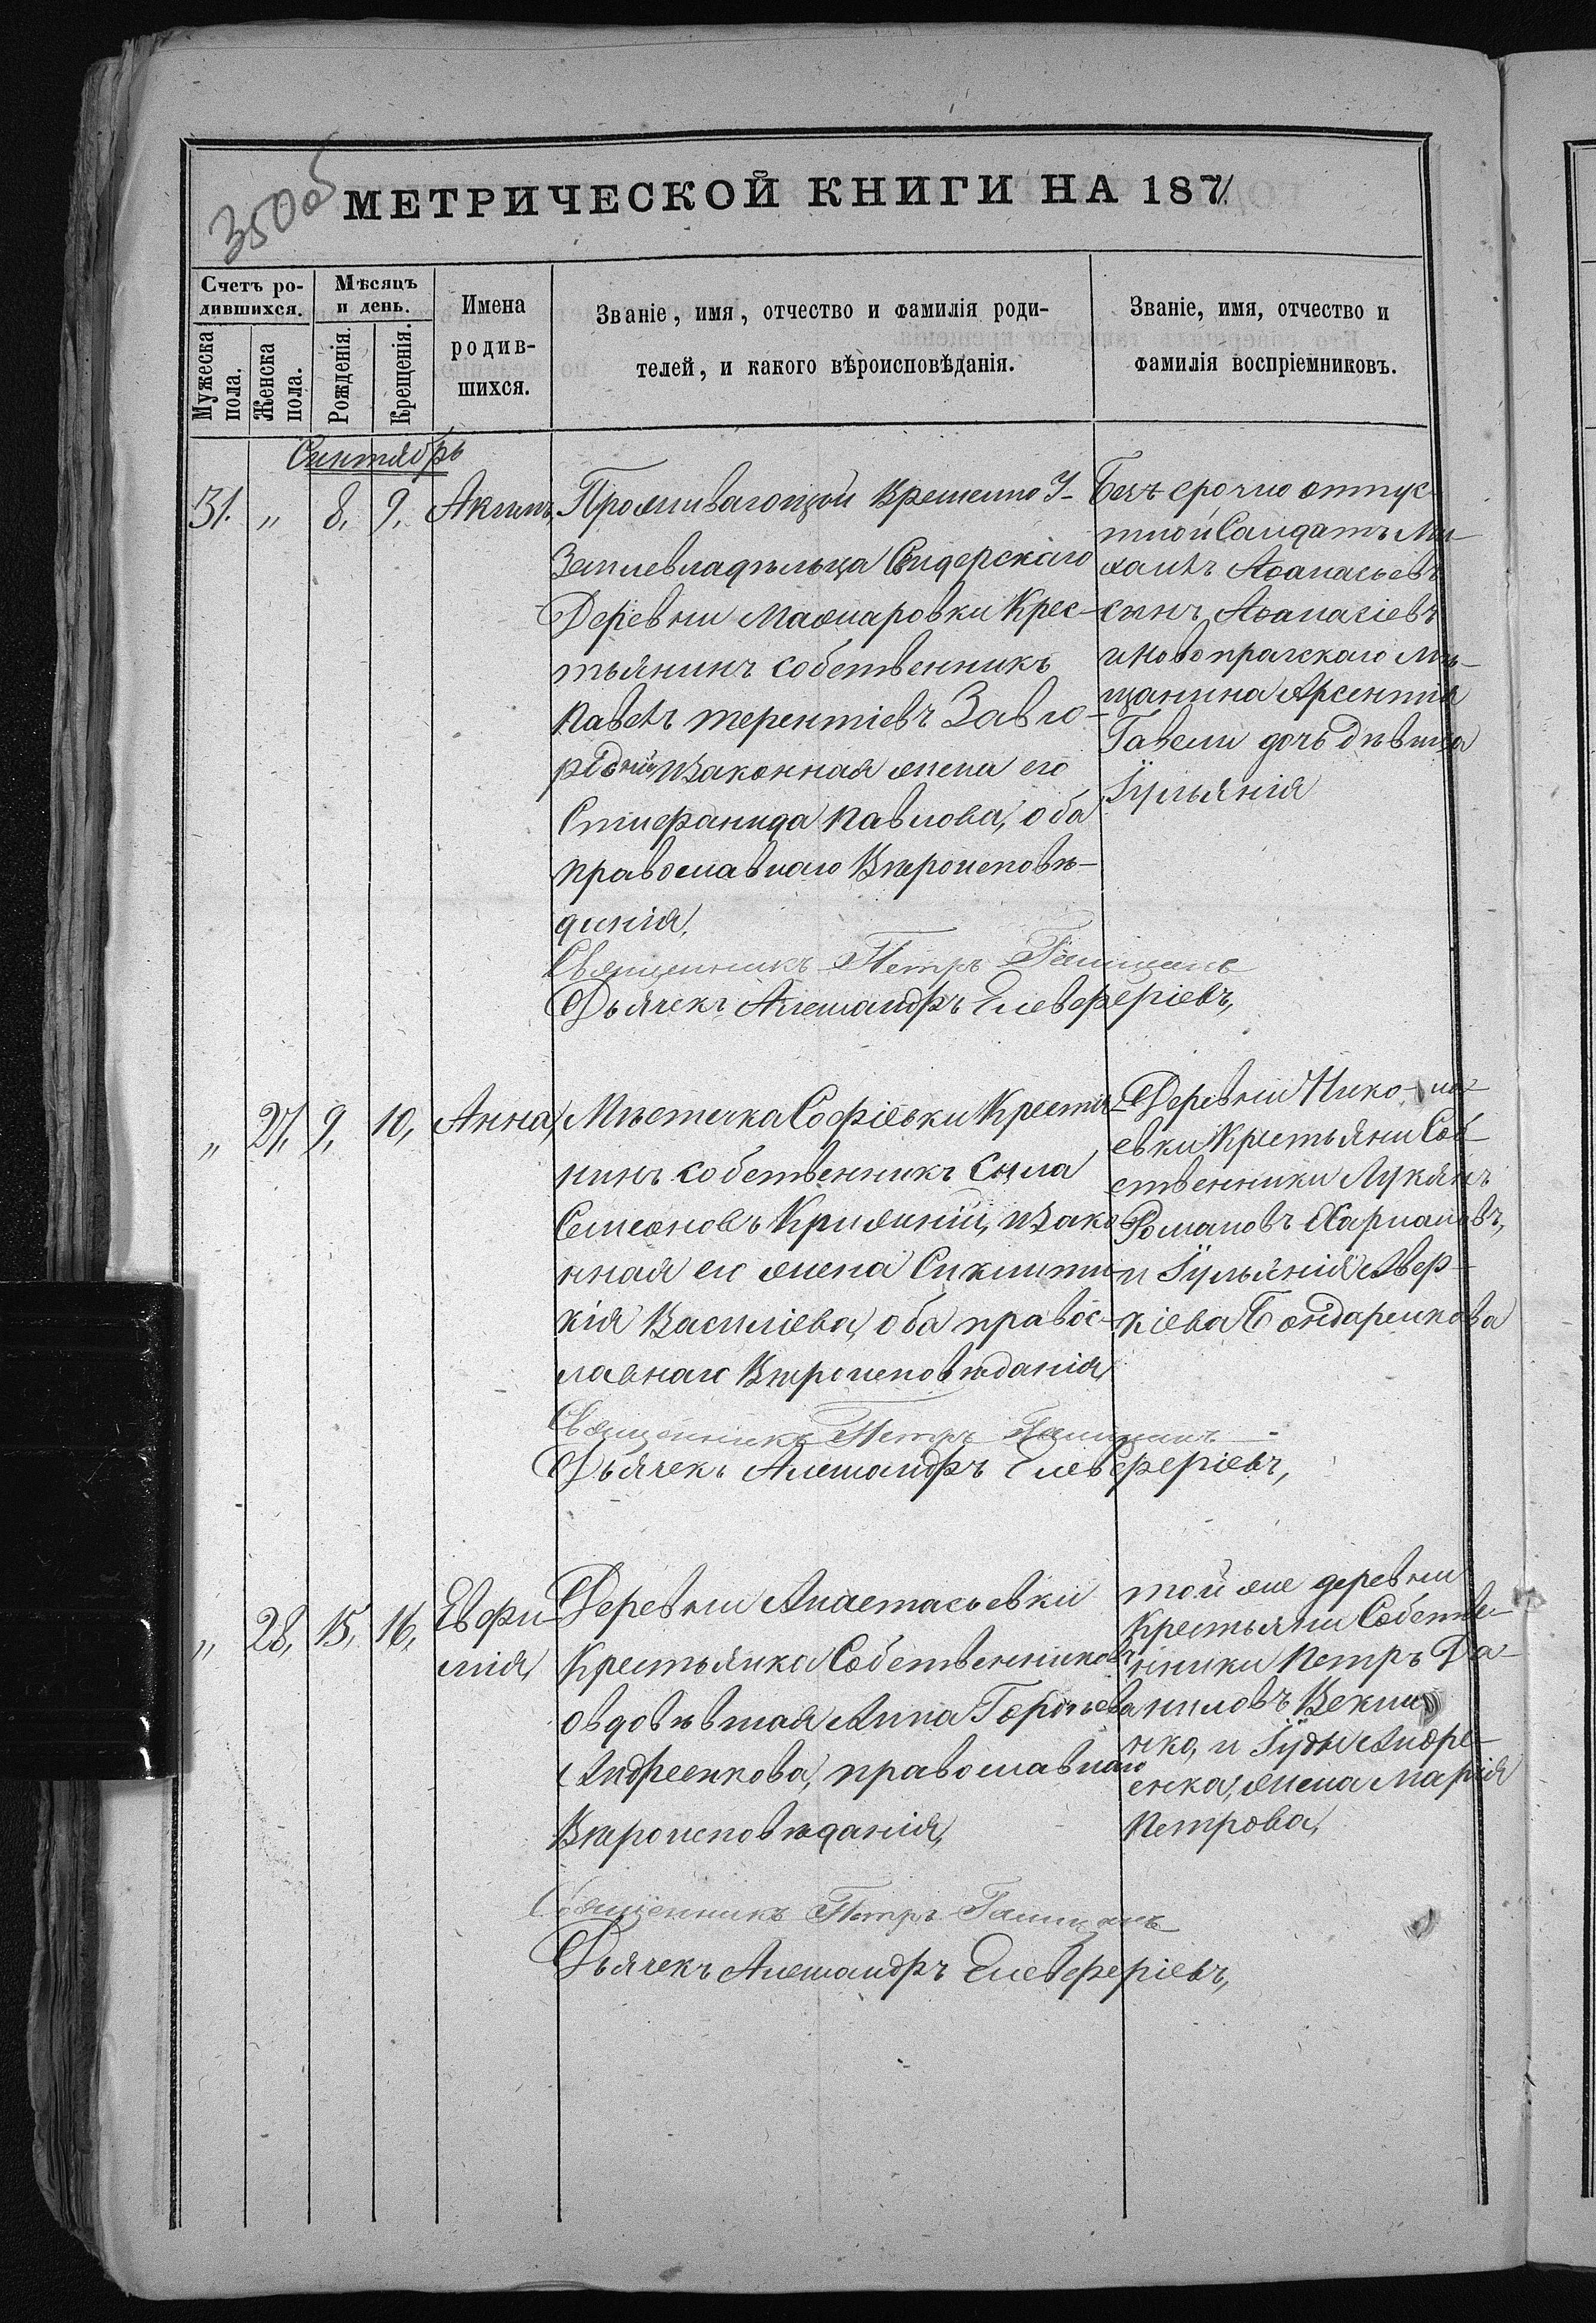 350об
МЕТРИЧЕСКОЙ КНИГИ НА 1871
Счетъ ро-
дившихся.
Мужеска
пола.
Женска
пола.
Мѣсяцъ
и день.
Рожденія.
Крещенія.
Имена
родив-
шихся.
Званіе, имя, отчество и фамилія роди-
телей, и какого вѣроисповѣданія.
Званіе, имя, отчество и
фамилія воспріемниковъ.
Сентябрь
31. „ 8, 9, Акимъ,
Проживающій временно У
Землевладѣльца Сидерскаго
Деревни Макаровки Крес-
тьянинъ собственникъ
Павелъ терентіевъ Завго-
родній и законная жена его
Стиефанида Павлова, оба
православнаго Вѣроисповѣ-
денія,
Священникъ Петръ
Дьячекъ Александръ Елевферіевъ,
Безъ срочно отпус-
тной Салдатъ Ми-
хаилъ Аѳанасьевъ
сынъ Аѳанасіевъ
и новопражскаго Мѣ-
щанина Арсентія
дочь дѣвица
Іульянія
„ 27, 9, 10, Анна,
Мѣстечка Софіевки Крестья-
нинъ собственникъ Сила
Семеоновъ и зако-
нная его жена Сикмити-
кія Василіева, оба правос-
лавнаго Вѣроисповѣданія,
Священникъ Петръ
Дьячекъ Александръ Елевферіевъ,
Деревни Нико-ла-
евки Крестьяни Соб-
ственники Лукіянъ
Романовъ
и Іульянія Авер-
кіева Бондаренкова
„ 28, 15, 16, Евфи-
мія,
Деревни Анастасьевки
Крестьянка Собственниковъ
овдовѣвшая Анна
Андреенкова, православнаго
Вѣроисповѣданія,
Священникъ Петръ
Дьячекъ Александръ Елевферіевъ,
той же деревни
Крестьяни Собстве-
нники Петръ Да-
ниловъ Векли
нко, и Іуды Андре-
енка, жена Марія
Петрова,